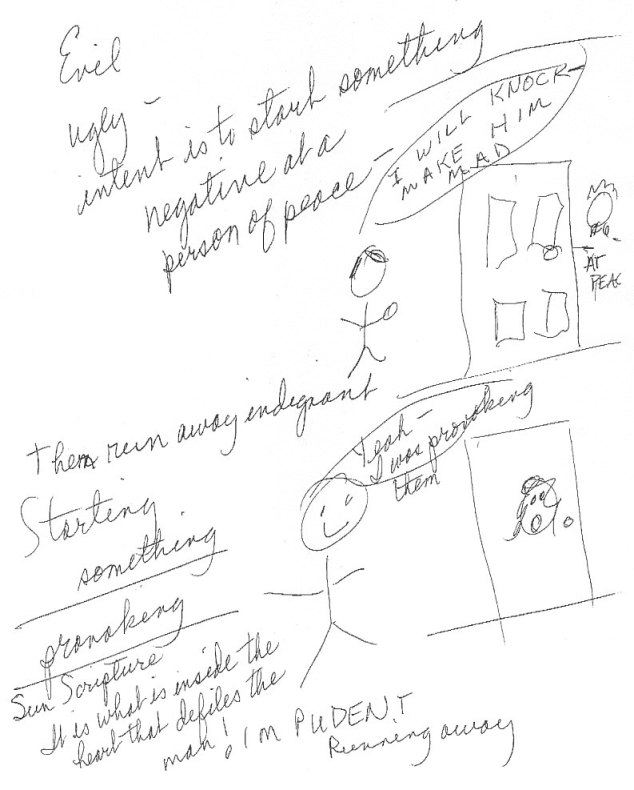 Evil
ugly -
intent is to start something
negative at a
person of peace -
I WILL KNOCK-
MAKE HIM
MAD
AT
PEAC
Then run away indegrant
Yeah -
I was provoking
them
Starting
something
provoking
Sun Scripture
It is what is inside the
heart that defiles the
man!
IMPUDENT
Running away